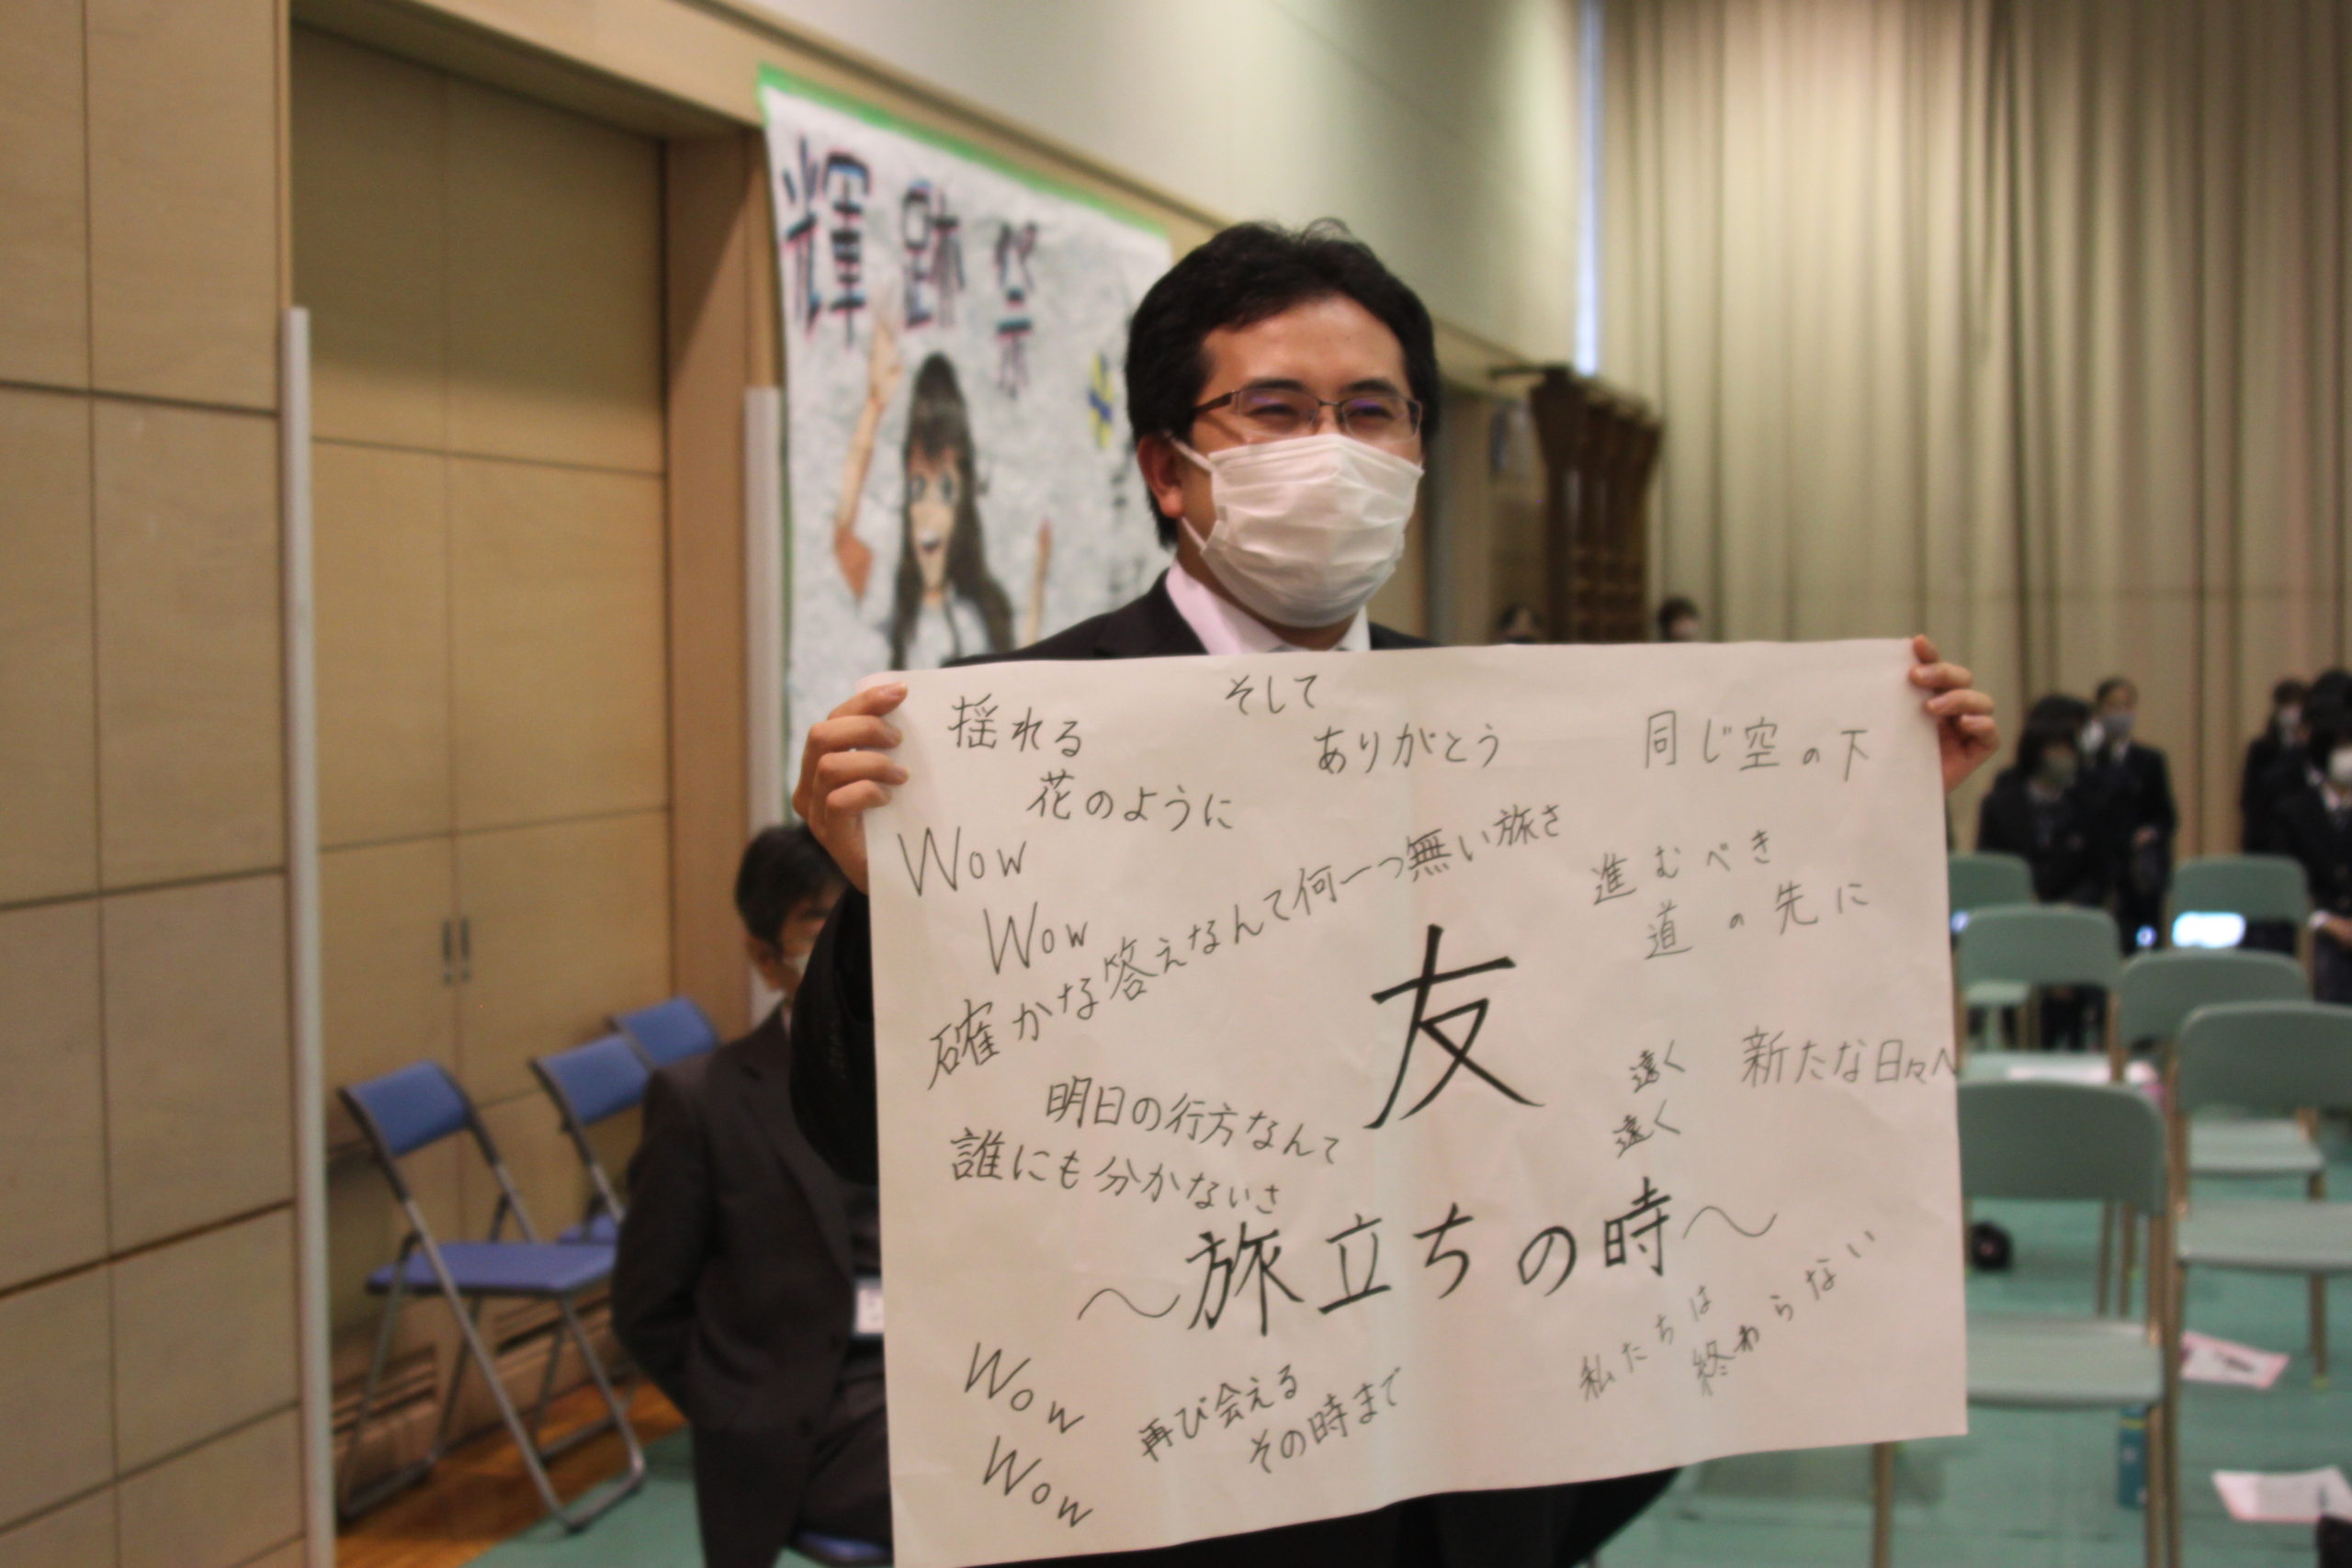 輝跡祭
揺れる
花のように
そして
ありがとう
同じ空の下
Wow
Wow
確かな答えなんて何一つ無い旅さ
進むべき
道の先に
友
明日の行方なんて
誰にも分かないいさ
遠く
遠く
新たな日々へ
〜旅立ちの時〜
Wow
Wow
再び会える
その時まで
私たちは
終わらない